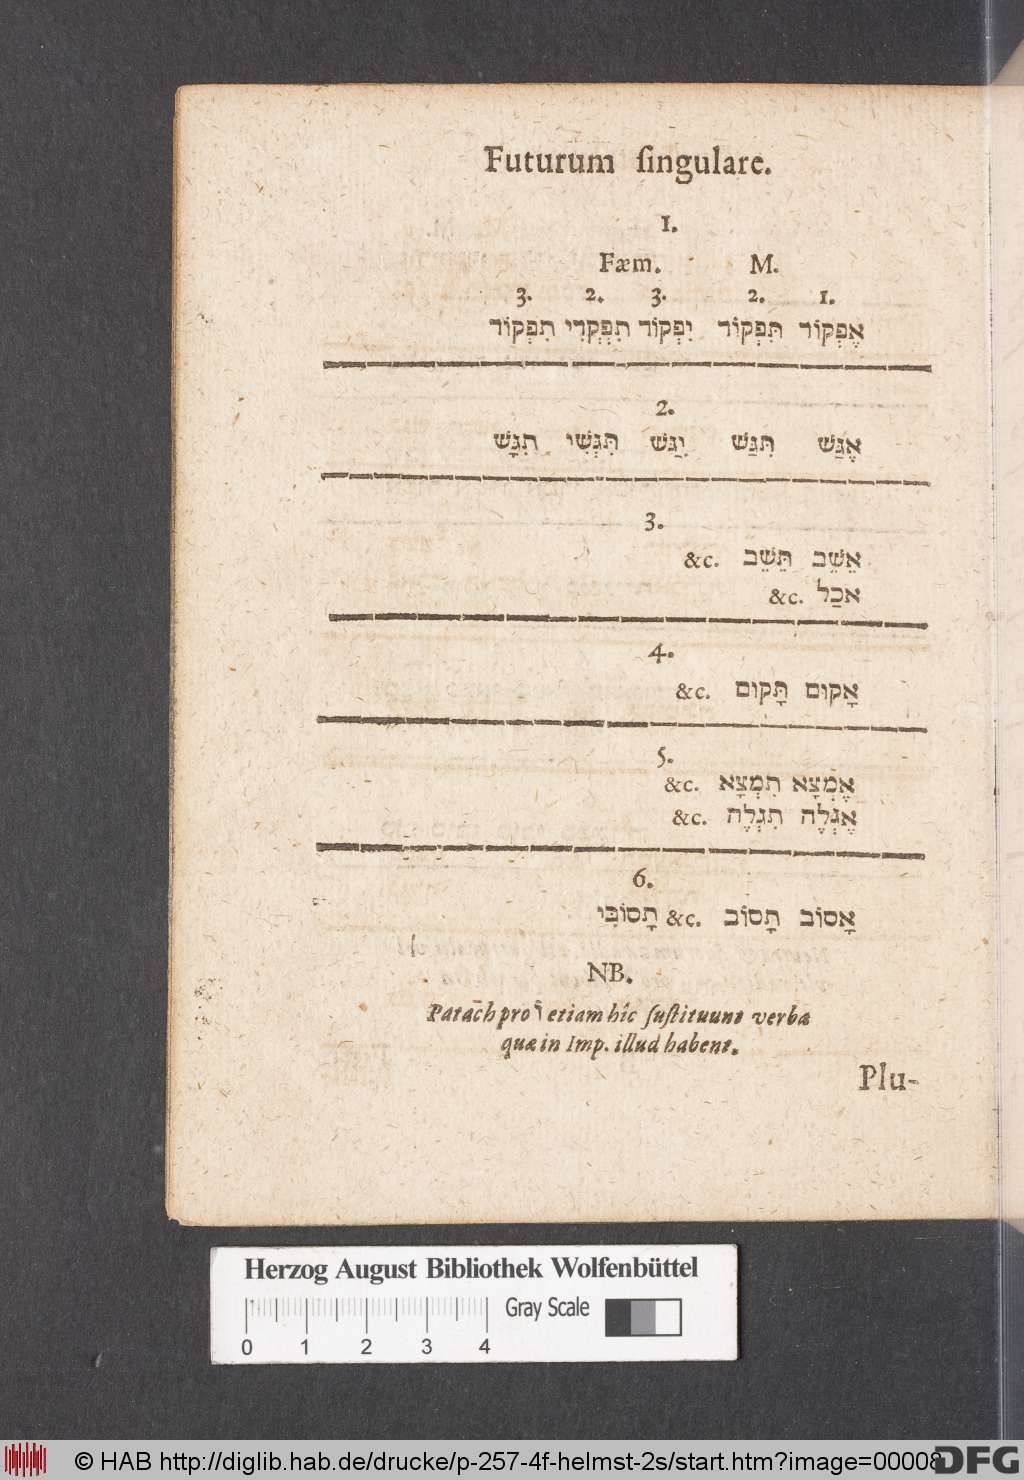 Futurum ſingulare.
1.
Fæm. M.
3. 2. 3. 2. 1.
אֶפְקוֹד תִּפְקוֹד יִפְקוֹד תִפְקְדִי תִפְקוֹד
2.
אֶגַּשׁ תִּגַּשׁ יִגַּשׁ תִּגְּשִׁי תִגָּשׁ
3.
אֵשֵׁב תֵּשֵׁב &c.
אכַל &c.
4.
אָקוּם תָּקוּם &c.
5.
אֶמְצָא תִמְצָא &c.
אֶגְלֶה תִגְלֶה &c.
6.
אָסוֹב תָסוֹב &c. תָסוֹבִּי
NB.
Patach pro etiam hîc ſuſtituunt verba
quæ in Imp. illud habent.
Plu-
Herzog August Bibliothek Wolfenbüttel
Gray Scale
0 1 2 3 4
© HAB http://diglib.hab.de/drucke/p-257-4f-helmst-2s/start.htm?image=00008
DFG